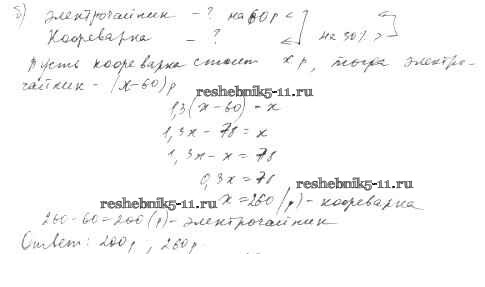 б) электрочайник - ? на 60 р <
Кофеварка - ? на 30% >
Пусть кофеварка стоит x р, тогда электро-
чайник - (x-60) р
reshebnik5-11.ru
1,3(x-60) = x
1,3x - 78 = x
1,3x - x = 78
0,3x = 78
reshebnik5-11.ru
x = 260 (р) - кофеварка
reshebnik5-11.ru
260-60 = 200 (р) - электрочайник
Ответ: 200 р, 260 р.